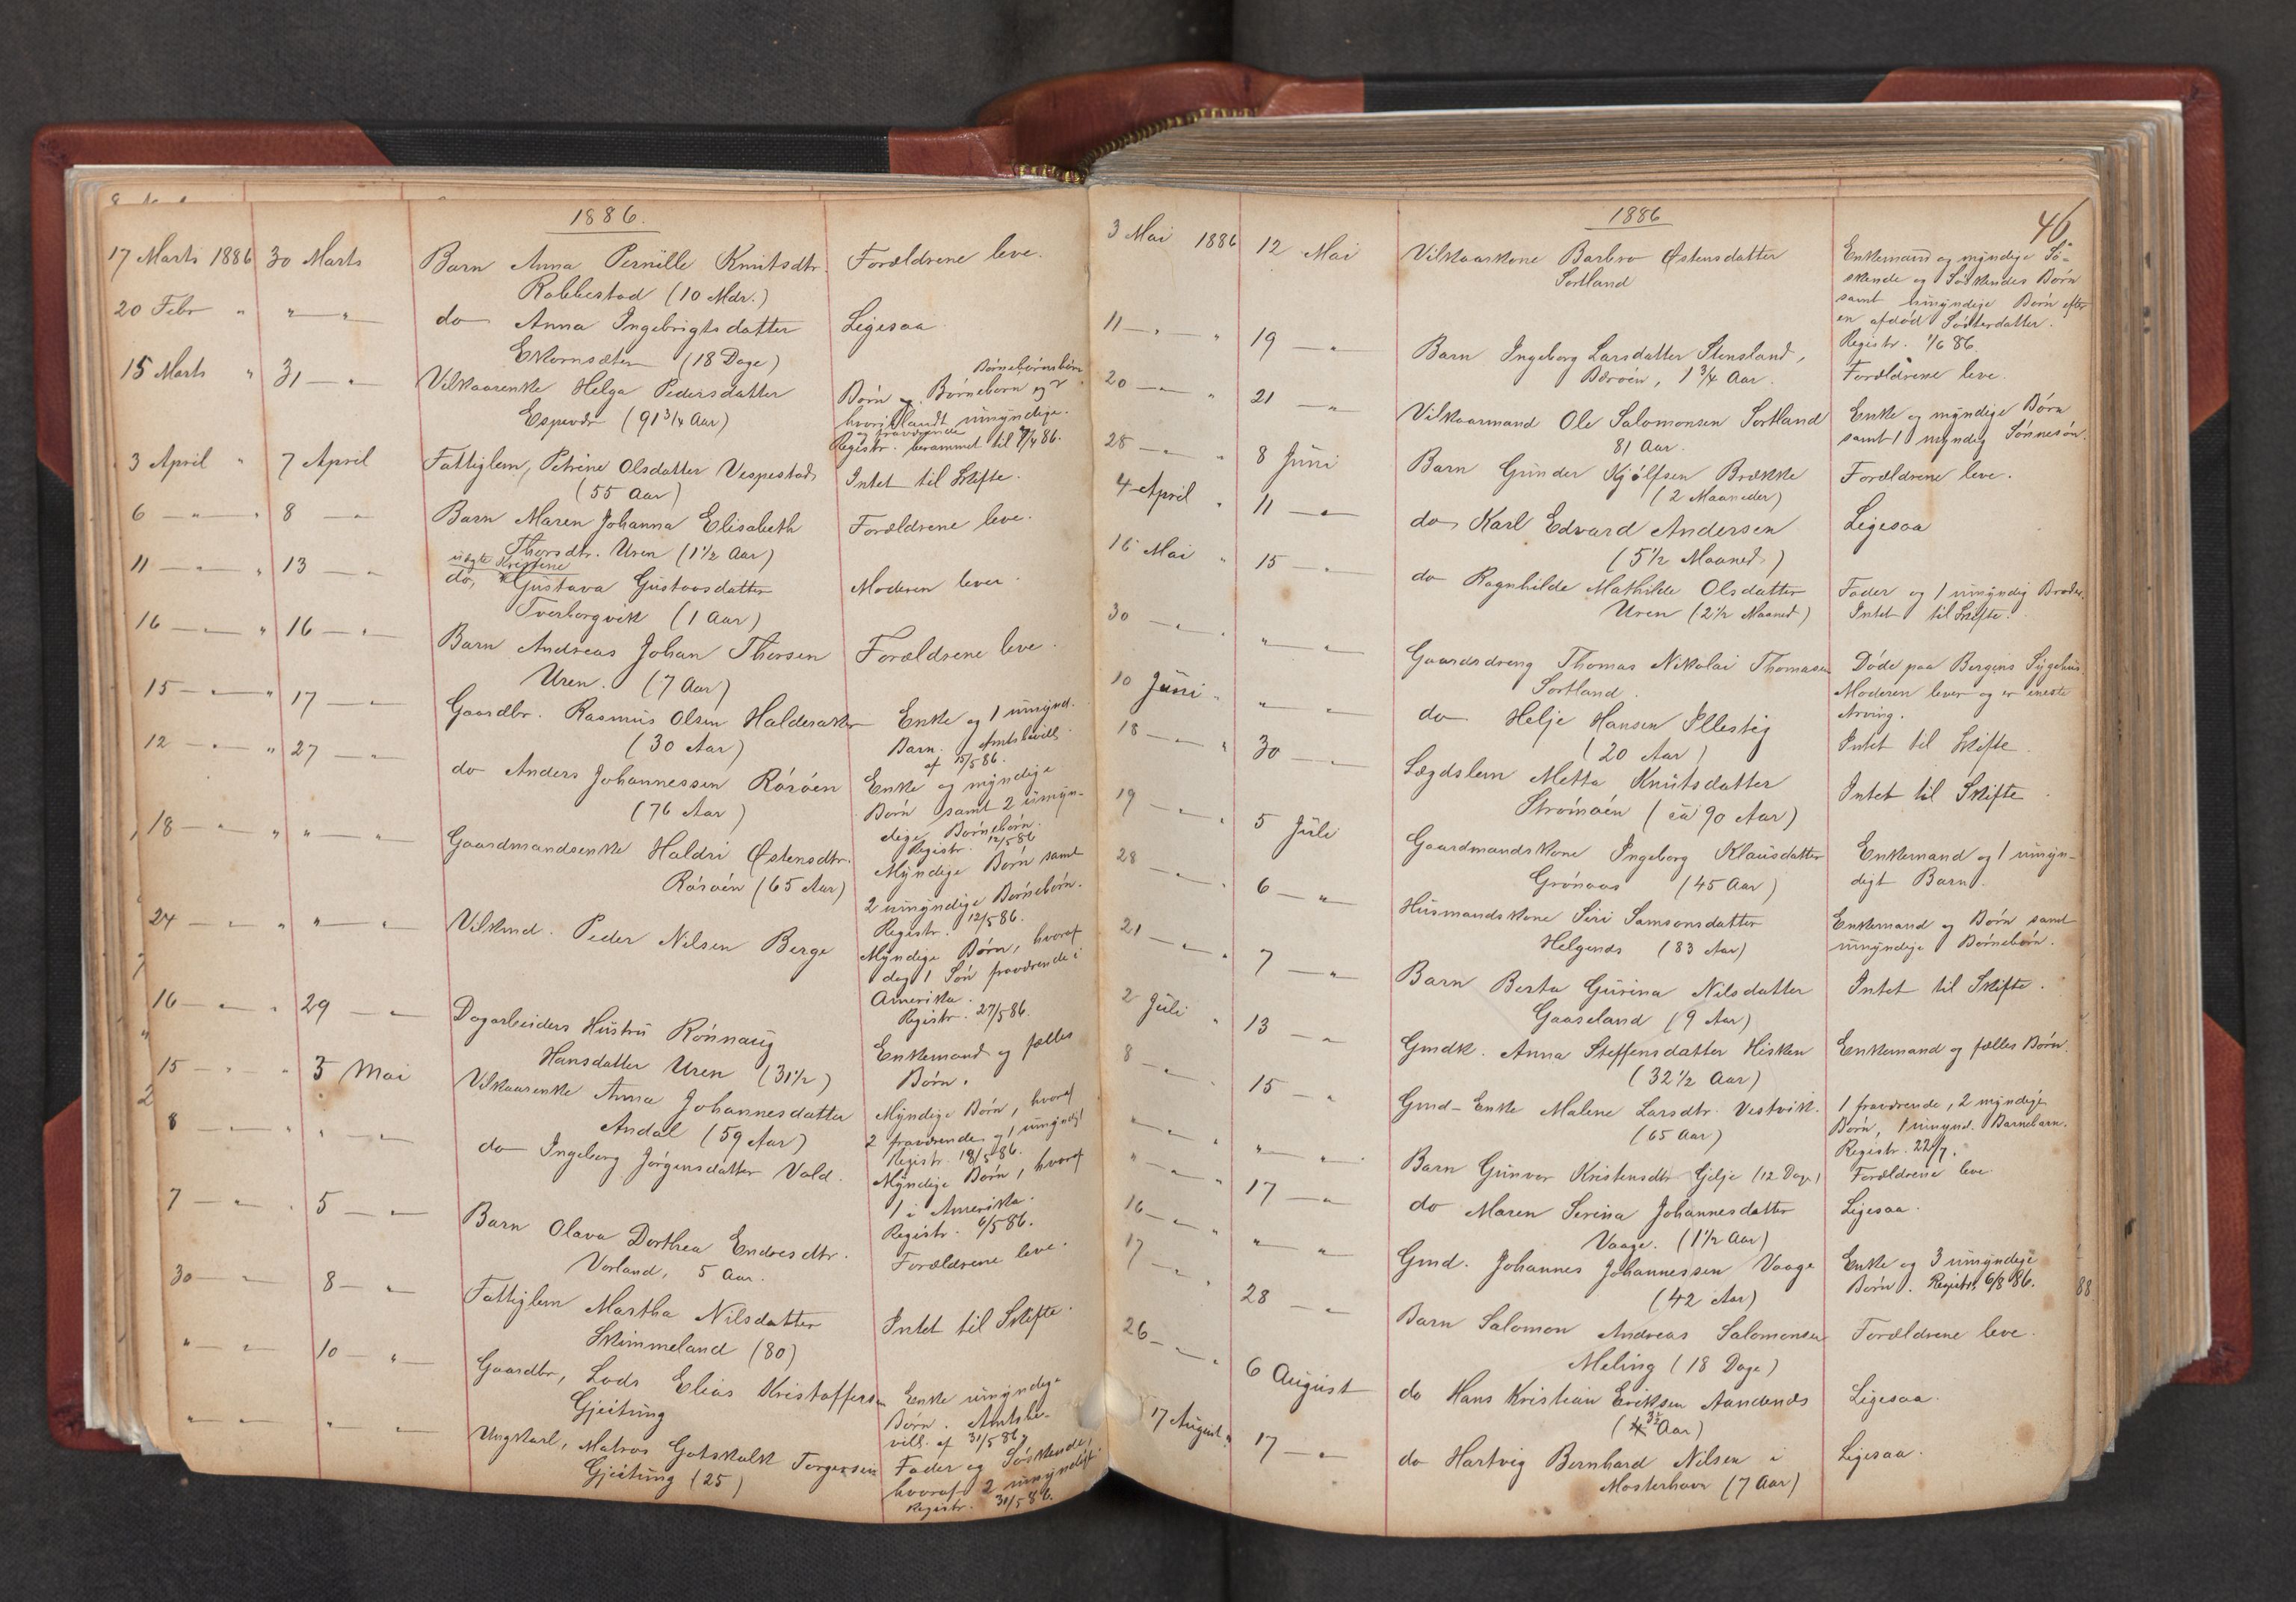 1886.
17 Marts 1886 30 Marts Barn Anna Pernille Knutsdtr. Forældrene leve.
Robbestad (10 Mdr.)
20 Febr " " — " do Anna Ingebrigtsdatter Ligesaa
Ekornsæter (18 Dage)
15 Marts " 31 — " Vilkaarenke Helga Pedersdatter Børn og Børnebørn og Børnebørnsbørn
Espevær (91 3/4 Aar) hvoriblandt umyndige.
og fraværende
Registr. berammet til 7/4 86.
3 April " 7 April Fattiglem, Petrine Olsdatter Vespestad Intet til Skifte.
(55 Aar)
6 — " — " 8 — " Barn Maren Johanna Elisabeth Forældrene leve.
Thorsdtr. Uren (1 1/2 Aar)
11 — " — " 13 — " do, uægte Kristine Gustava Gustavsdatter Moderen lever.
Tverborgvik (1 Aar)
16 — " — " 16 — " Barn Andreas Johan Thorsen Forældrene leve.
Uren. (7 Aar)
15 — " — " 17 — " Gaardbr. Rasmus Olsen Halderaker Enke og 1 umynd.
(30 Aar) Barn. Amtsbevill.
af 15/5 86.
12 — " — " 27 — " do Anders Johannessen Rørøen Enke og myndige
(76 Aar) Børn samt 2 umyn-
dige Børnebørn.
Registr. 12/5 86
18 — " — " " — " Gaardmandsenke Haldri Østensdtr. Myndige Børn samt
Rørøen (65 Aar) 2 umyndige Børnebørn.
Registr. 12/5 86.
24 — " — " " — " Vilkmd. Peder Nilsen Berge Myndige Børn, hvoraf
dog 1 Søn fraværende i
Amerika.
Registr. 27/5 86.
16 — " — " 29 — " Dagarbeiders Hustru Rønnaug Enkemand og fælles
Hansdatter Uren (31 1/2) Børn.
15 — " — " 5 Mai Vilkaarenke Anna Johannesdatter Myndige Børn, hvoraf
Andal (59 Aar) 2 fraværende og 1 umyndig
Registr. 18/5 86.
8 — " — " " — " do Ingeborg Jørgensdatter Vold. Myndige Børn, hvoraf
1 i Amerika.
Registr. 6/5 86.
7 — " — " 5 — " Barn Olava Dorthea Endresdtr. Forældrene leve.
Vorland, 5 Aar.
30 — " 8 — " Fattiglem Martha Nilsdatter Intet til Skifte.
Skimmeland (80)
" — " 10 — " Gaardbr, Lods Elias Kristoffersen Enke umyndige
Gjeitung Børn. Amtsbe-
vill. af 31/5 86.
" — " " — " Ungkarl, Matros Gotskalk Torgersen Fader og Søskende,
Gjeitung (25) hvoraf 2 umyndige
Registr. 31/5 86.
1886
46
3 Mai 1886 12 Mai Vilkaarkone Barbro Østensdatter Enkemand og myndige Sø-
Sortland skende og Søskendes Børn
samt umyndige Børn efter
en afdød Søsterdatter.
Registr. 1/6 86.
11 — " — " 19 — " Barn Ingeborg Larsdatter Stensland, Forældrene leve.
Bærøen, 1 3/4 Aar.
20 — " — " 21 — " Vilkaarmand Ole Salomonsen Sortland Enke og myndige Børn
81 Aar. samt 1 myndig Sønnesøn.
28 — " — " 8 Juni Barn Gunder Kjølfsen Brække Forældrene leve.
(2 Maaneder)
4 April " 11 — " do Karl Edvard Andersen Ligesaa
(5 1/2 Maaned.)
16 Mai " 15 — " do Ragnhilde Mathilde Olsdatter Fader og 1 umyndig Broder.
Uren (2 1/2 Maaned) Intet til Skifte.
30 — " — " " — " Gaardsdreng Thomas Nikolai Thomasen Døde paa Bergens Sygehus.
Sortland. Moderen lever og er eneste
Arving.
10 Juni " " — " do Helje Hansen Illestig Intet til Skifte.
(20 Aar)
18 — " — " 30 — " Lægdslem Metta Knutsdatter Intet til Skifte
Strømøen (ca 90 Aar)
19 — " — " 5 Juli Gaardmandskone Ingeborg Klausdatter Enkemand og 1 umyn-
Grønaas (45 Aar) digt Barn.
28 — " — " 6 — " Husmandskone Siri Samsonsdatter Enkemand og Børn samt
Helgenæs (83 Aar) umyndige Børnebørn.
21 — " — " 7 — " Barn Berta Gurina Nilsdatter Intet til Skifte.
Gaaseland (9 Aar)
2 Juli " 13 — " Gmdk. Anna Steffensdatter Hisken Enkemand og fælles Børn.
(32 1/2 Aar)
8 — " — " 15 — " Gmd-Enke Malene Larsdtr. Vestvik. 1 fraværende, 2 myndige
(65 Aar) Børn, 1 umynd. Barnebarn.
Registr. 22/7.
" — " — " " — " Barn Gunvor Kristensdtr Gilje (12 Dage) Forældrene leve.
" — " — " 17 — " do Maren Serina Johannesdatter Ligesaa.
Vaage. (1 1/2 Aar)
16 — " — " " — " Gmd. Johannes Johannessen Vaage Enke og 3 umyndige
(42 Aar) Børn. Registr. 6/8 86.
17 — " — " 28 — " Barn Salomon Andreas Salomonsen Forældrene leve.
Meling (18 Dage)
26 — " — " 6 August do Hans Kristian Eriksen Aandenæs Ligesaa.
(3 1/2 Aar)
17 August " 17 — " do Hartvig Bernhard Nilsen i Ligesaa.
Mosterhavn (7 Aar)
88